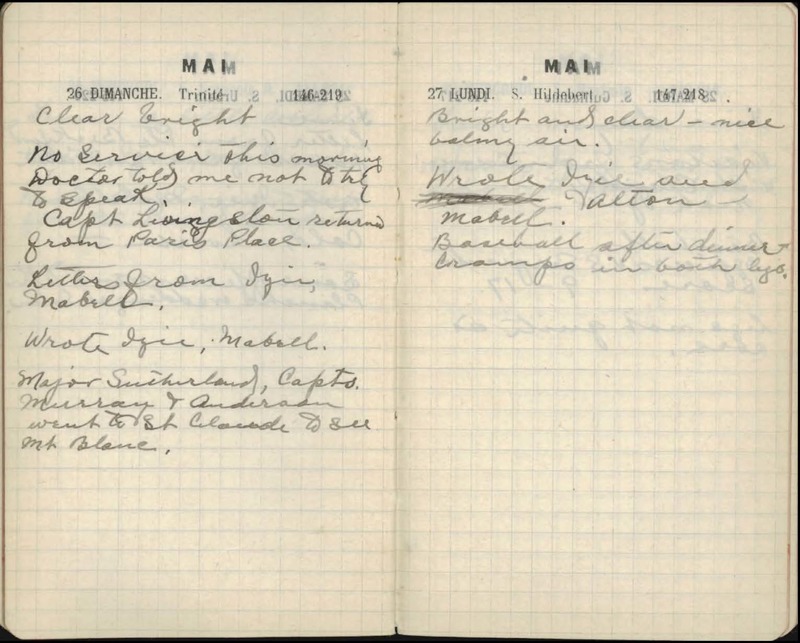 MAI
26 DIMANCHE. Trinité 146-219
Clear bright
No Service this morning
Doctor told me not to try
to speak.
Capt Livingston returned
from Paris Place.
Letters from Izie,
Mabell.
Wrote Izie, Mabell.
Major Sutherland, Capts.
Murray & Anderson
went to St Claude to see
Mt Blanc.
MAI
27 LUNDI. S. Hildebert 147-218
Bright and clear – nice
balmy air.
Wrote Izie and
Mabell.
Baseball after dinner
Cramps in both legs.